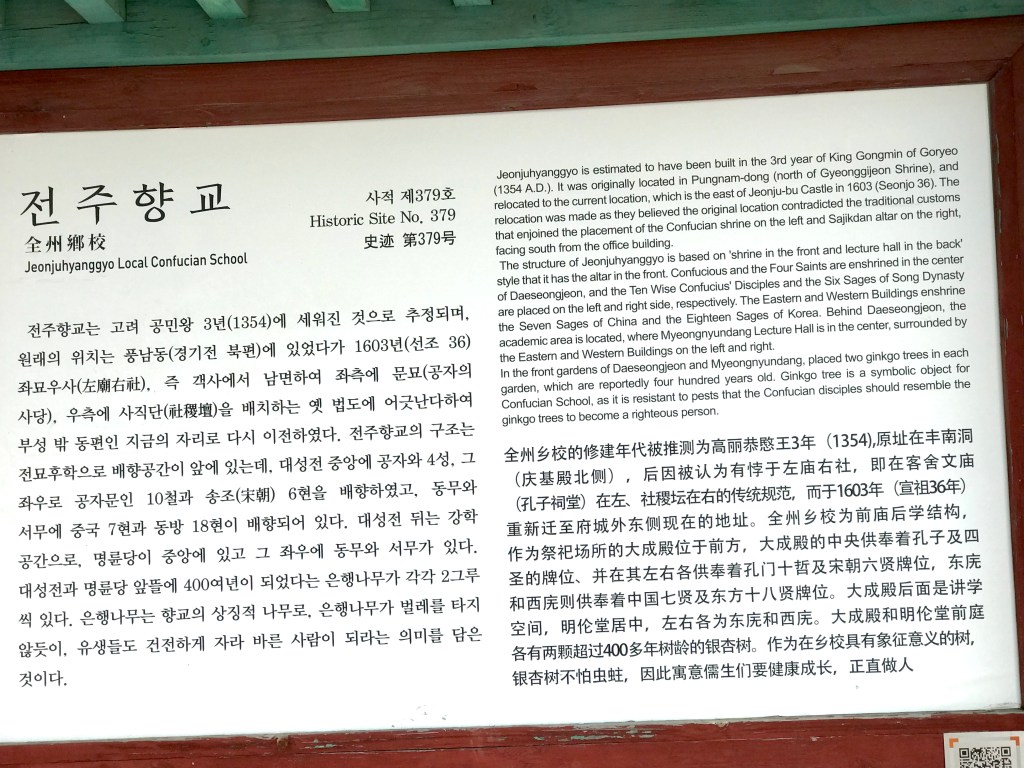 전주향교
全州鄕校
Jeonjuhyanggyo Local Confucian School
사적 제379호
Historic Site No. 379
史迹 第379号
전주향교는 고려 공민왕 3년(1354)에 세워진 것으로 추정되며,
원래의 위치는 풍남동(경기전 북편)에 있었다가 1603년(선조 36)
좌묘우사(左廟右社), 즉 객사에서 남면하여 좌측에 문묘(공자의
사당), 우측에 사직단(社稷壇)을 배치하는 옛 법도에 어긋난다하여
부성 밖 동편인 지금의 자리로 다시 이전하였다. 전주향교의 구조는
전묘후학으로 배향공간이 앞에 있는데, 대성전 중앙에 공자와 4성, 그
좌우로 공자문인 10철과 송조(宋朝) 6현을 배향하였고, 동무와
서무에 중국 7현과 동방 18현이 배향되어 있다. 대성전 뒤는 강학
공간으로, 명륜당이 중앙에 있고 그 좌우에 동무와 서무가 있다.
대성전과 명륜당 앞뜰에 400여년이 되었다는 은행나무가 각각 2그루
씩 있다. 은행나무는 향교의 상징적 나무로, 은행나무가 벌레를 타지
않듯이, 유생들도 건전하게 자라 바른 사람이 되라는 의미를 담은
것이다.
Jeonjuhyanggyo is estimated to have been built in the 3rd year of King Gongmin of Goryeo
(1354 A.D.). It was originally located in Pungnam-dong (north of Gyeonggijeon Shrine), and
relocated to the current location, which is the east of Jeonju-bu Castle in 1603 (Seonjo 36). The
relocation was made as they believed the original location contradicted the traditional customs
that enjoined the placement of the Confucian shrine on the left and Sajikdan altar on the right,
facing south from the office building.
The structure of Jeonjuhyanggyo is based on 'shrine in the front and lecture hall in the back'
style that it has the altar in the front. Confucious and the Four Saints are enshrined in the center
of Daeseongjeon, and the Ten Wise Confucius' Disciples and the Six Sages of Song Dynasty
are placed on the left and right side, respectively. The Eastern and Western Buildings enshrine
the Seven Sages of China and the Eighteen Sages of Korea. Behind Daeseongjeon, the
academic area is located, where Myeongnyundang Lecture Hall is in the center, surrounded by
the Eastern and Western Buildings on the left and right.
In the front gardens of Daeseongjeon and Myeongnyundang, placed two ginkgo trees in each
garden, which are reportedly four hundred years old. Ginkgo tree is a symbolic object for
Confucian School, as it is resistant to pests that the Confucian disciples should resemble the
ginkgo trees to become a righteous person.
全州乡校的修建年代被推测为高丽恭愍王3年（1354),原址在丰南洞
（庆基殿北侧），后因被认为有悖于左庙右社，即在客舍文庙
（孔子祠堂）在左、社稷坛在右的传统规范，而于1603年（宣祖36年）
重新迁至府城外东侧现在的地址。全州乡校为前庙后学结构，
作为祭祀场所的大成殿位于前方，大成殿的中央供奉着孔子及四
圣的牌位、并在其左右各供奉着孔门十哲及宋朝六贤牌位，东庑
和西庑则供奉着中国七贤及东方十八贤牌位。大成殿后面是讲学
空间，明伦堂居中，左右各为东庑和西庑。大成殿和明伦堂前庭
各有两颗超过400多年树龄的银杏树。作为在乡校具有象征意义的树，
银杏树不怕虫蛀，因此寓意儒生们要健康成长，正直做人